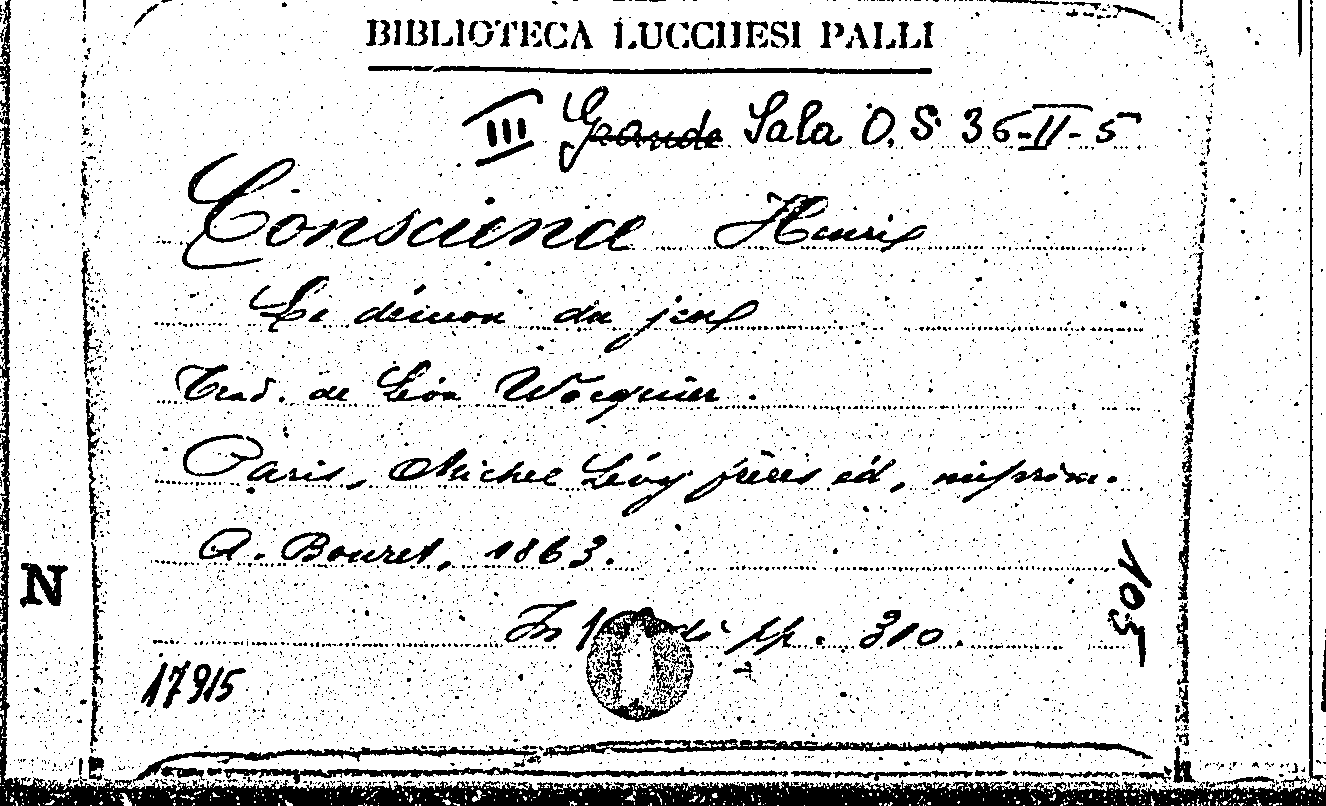 BIBLIOTECA LUCCHESI PALLI
III Grande Sala O. S. 36-II-5
Conscience Henri
Le démon du jeu
Trad. de Léon Wocquier.
Paris, Michel Lévy frères éd, imprim.
A. Bouret, 1863.
In di pp. 310.
103
N
17915